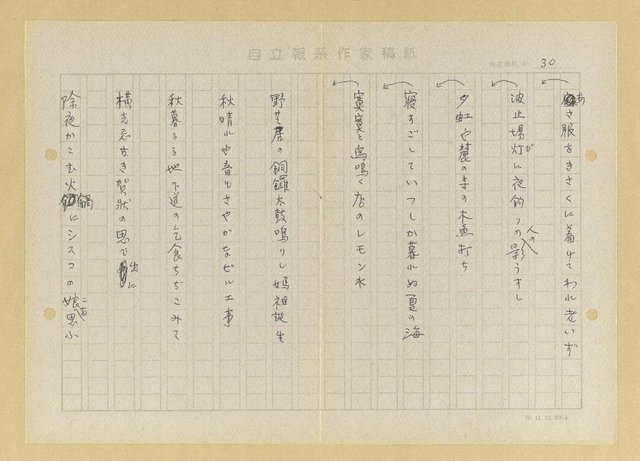 自立報系作家稿紙
30
あさ服をきさくに着けてわれ老いず
波止場灯が に夜釣りの人の影うすし
夕虹や麓の寺の木魚打ち
寝すごしていつしか暮れぬ夏の海
寞寞と鳥鳴く店のレモン水
野芝居の銅鑼太鼓鳴りし媽祖誕生
秋晴れや音もさやかなビル工事
秋暮るる地下道のして食ちぢこみて
横光志古き賀状の思で
除夜かこむ火鍋にシスコの娘思ふ